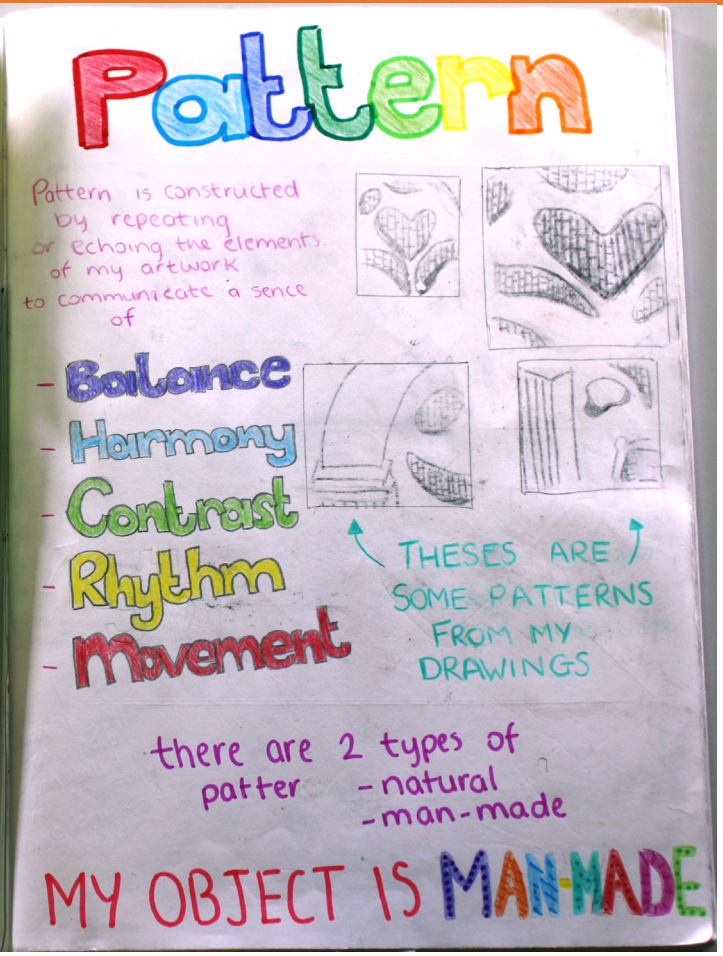 Pattern
Pattern is constructed
by repeating
or echoing the elements
of my artwork
to communicate a sence
of
- Balance
- Harmony
- Contrast
- Rhythm
- Movement
THESES ARE
SOME PATTERNS
FROM MY
DRAWINGS
there are 2 types of
patter - natural
- man-made
MY OBJECT IS MAN-MADE